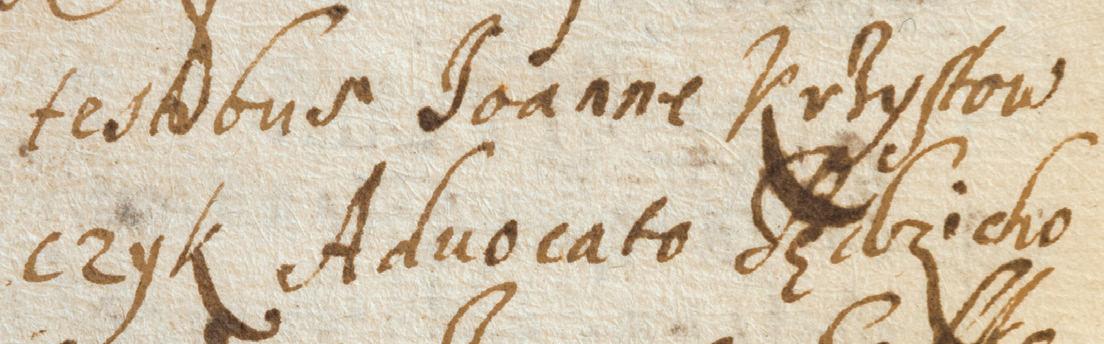 testibus Joanne Przystow
czyk Advocato Sędzicho